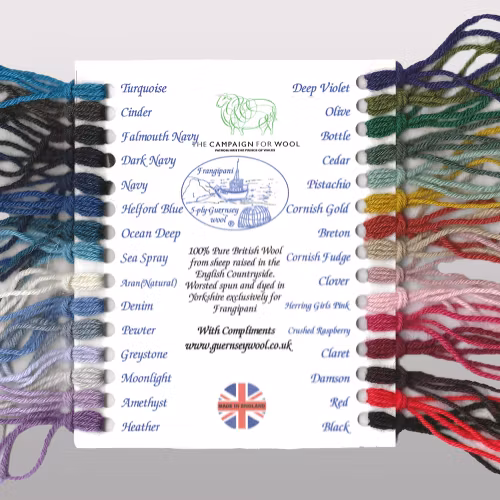 Turquoise
Cinder
Falmouth Navy
Dark Navy
Navy
Helford Blue
Ocean Deep
Sea Spray
Aran(Natural)
Denim
Pewter
Greystone
Moonlight
Amethyst
Heather
THE CAMPAIGN FOR WOOL
PATRON: HRH THE PRINCE OF WALES
Frangipani
5-ply Guernsey
wool ®
100% Pure British Wool
from sheep raised in the
English Countryside.
Worsted spun and dyed in
Yorkshire exclusively for
Frangipani
With Compliments
www.guernseywool.co.uk
MADE IN ENGLAND
Deep Violet
Olive
Bottle
Cedar
Pistachio
Cornish Gold
Breton
Cornish Fudge
Clover
Herring Girls Pink
Crushed Raspberry
Claret
Damson
Red
Black